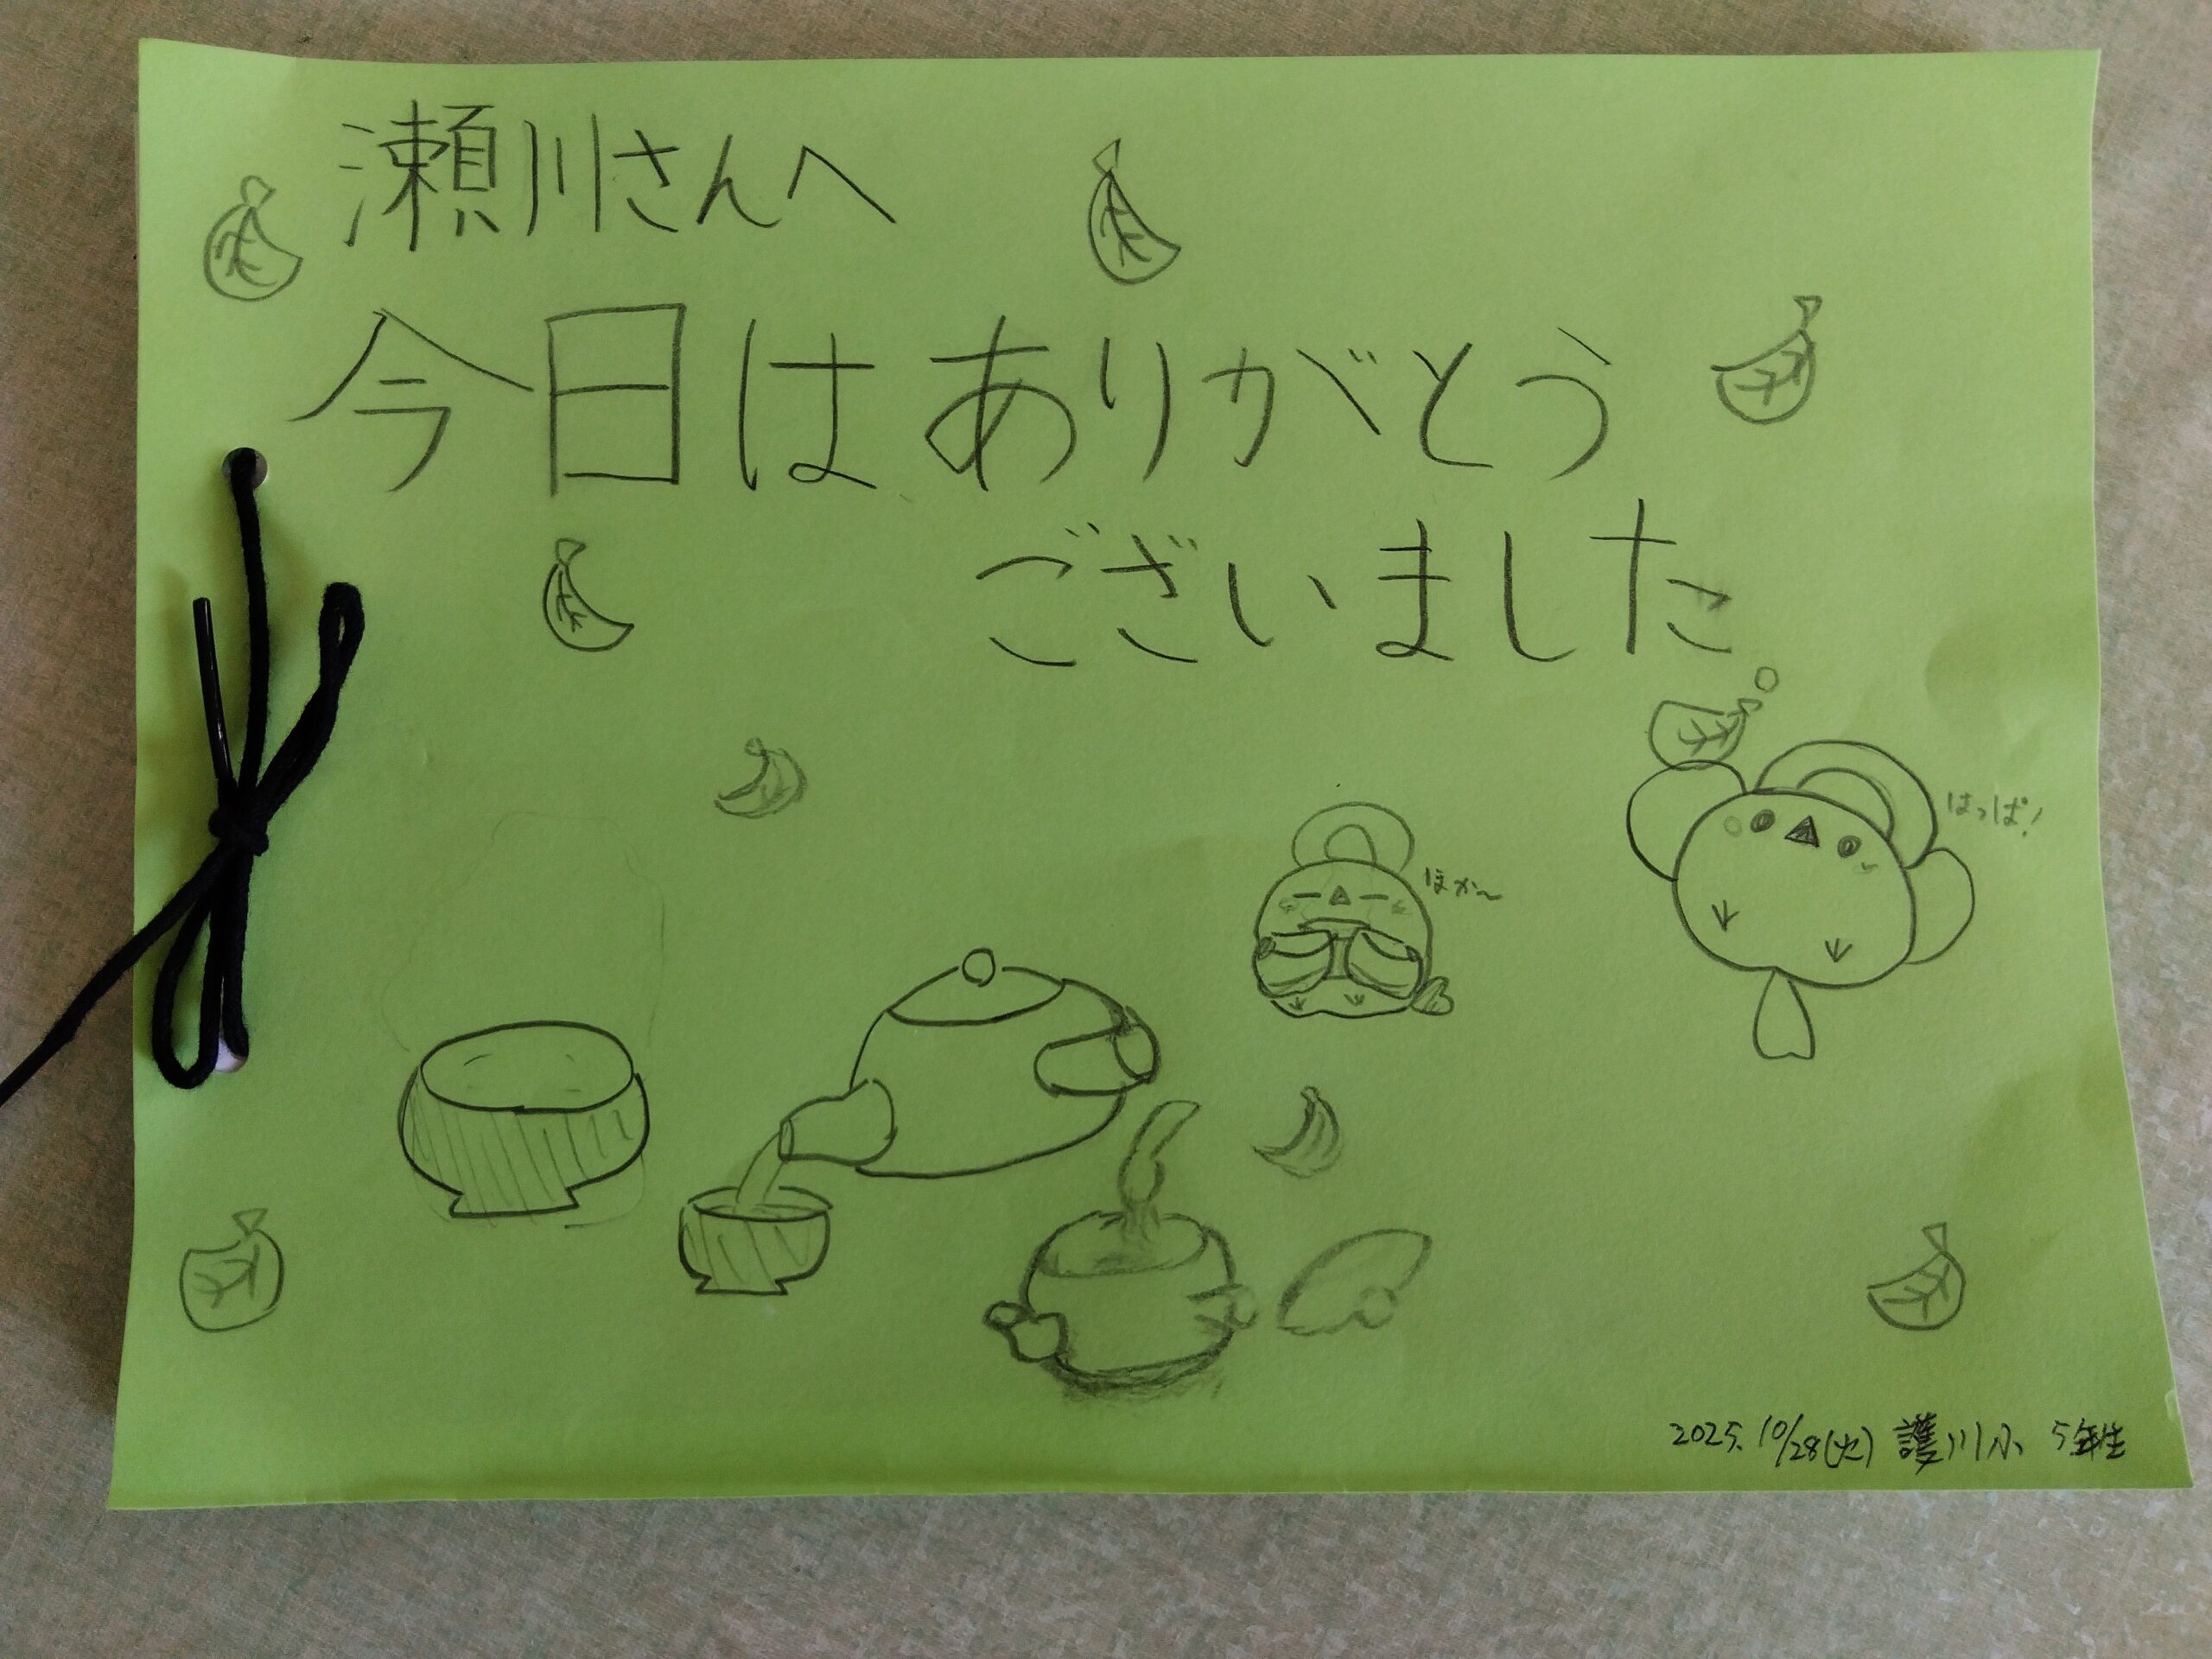 瀬川さんへ
今日はありがとう
ございました。
はっぱ!
ほか〜
2025.10/28(火) 護川小 5年生